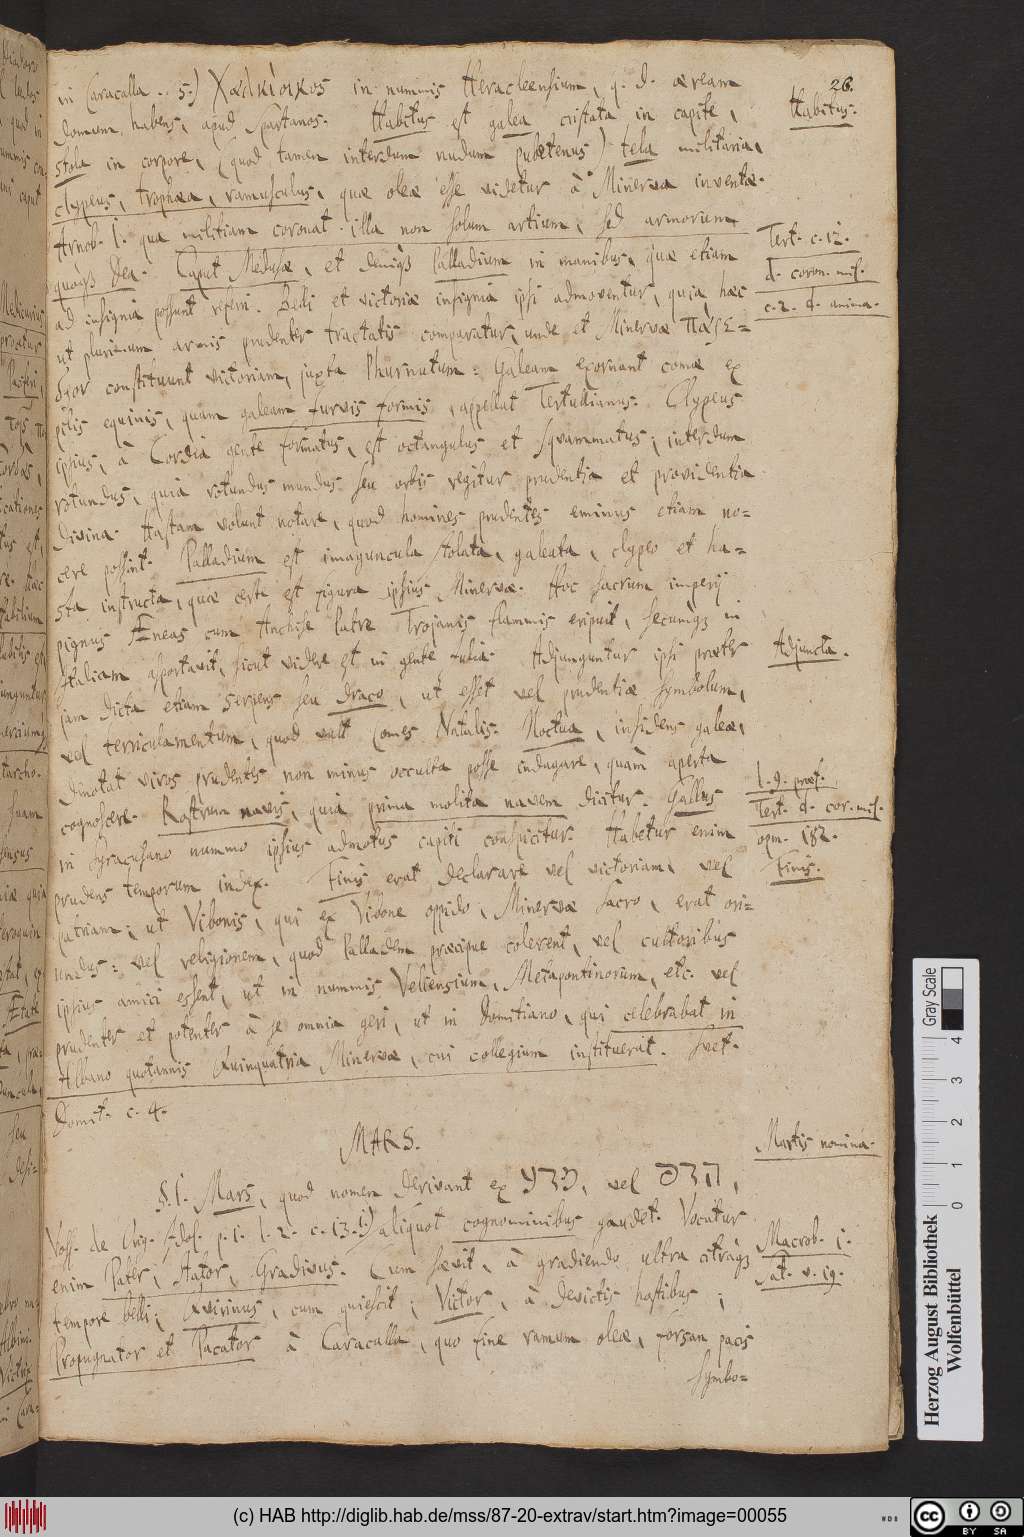 26.
in Caracalla. 5.) Χαλκίοικος in nummis Heracleensium, q. d. æream
domum habens, apud Spartanos. Habitus est galea cristata in capite,
Habitus.
stola in corpore, (quod tamen interdum nudum ) tela militaria,
clypeus, trophæa, ramusculus, quæ oleæ esse videtur à Minerva inventæ.
Arnob. 1. qua militiam coronat. illa non solum artium, sed armorum
Tert. c. 12.
quoqs Dea. Caput Medusæ, et deniqs Palladium in manibus, quæ etiam
d. coron. mil.
ad insignia possunt referri. Belli et victoriæ insignia ipsi admoventur, quia hæc
c. 2. d. anima.
ut plurimum armis prudenter tractatis comparatur, unde et Minervæ
constituunt victoriam, juxta Phurnutum: Galeam exornant comæ ex
pilis equinis, quam galeam furvis formis, appellat Tertullianus. Clypeus
ipsius, à Cordia gente formatus, est octangulus et squammatus; interdum
rotundus, quia rotundus mundus seu orbis regitur prudentia et providentia
divina. Hastam volunt notare, quod homines prudentes eminus etiam no=
cere possint. Palladium est imaguncula stolata, galeata, clypeo et ha=
sta instructa, quæ certe est figura ipsius Minervæ. Hoc sacrum imperij
pignus Æneas cum Anchise Patre Trojanis flammis eripuit, secumqs in
Italiam asportavit, sicut videre est in gente Julia. Adjunguntur ipsi præter
Adjuncta.
jam dicta etiam serpens seu draco, ut esset vel prudentiæ symbolum,
vel terriculamentum, quod vult Comes Natalis. Noctua, insidens galeæ,
denotat viros prudentes non minus occulta posse indagare, quàm aperta
cognoscere. Rostrum navis, quia prima molita navem dicitur. Gallus
l. 9. præf.
Tert. d. cor. mil.
in Syracusano nummo ipsius admotus capiti conspicitur. Habetur enim
opm. 182.
prudens temporum index. Finis erat declarare vel victoriam, vel
Finis.
patriam; ut Vibonis, qui ex Vibone oppido, Minervæ sacro, erat ori=
undus: vel religionem, quod Palladem præcipue colerent, vel cultoribus
ipsius amici essent, ut in nummis Veliensium, Metapontinorum, etc. vel
prudenter et potenter à se omnia geri, ut in Domitiano, qui celebrabat in
Albano quotannis Quinquatria Minervæ, cui collegium instituerat. Svet.
Domit. c. 4.
MARS.
Martis nomina.
§. 1. Mars, quod nomen derivant ex , vel ,
Voss. de Orig. Idol. p. 1. l. 2. c. 13.) aliquot cognominibus gaudet. Vocatur
Macrob. 1.
enim Pater, Stator, Gradivus. Cum sævit, à gradiendo ultra citraqs
Sat. v. 19.
tempore belli; Qvirinus, cum quiescit; Victor, à devictis hostibus;
Propugnator et Pacator à Caracalla, quo fine ramum oleæ, forsan pacis
symbo=
Gray Scale
Herzog August Bibliothek
Wolfenbüttel
0 1 2 3 4
(c) HAB http://diglib.hab.de/mss/87-20-extrav/start.htm?image=00055
cc BY SA